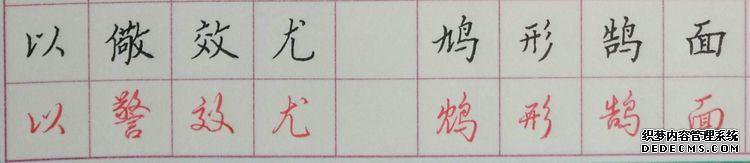 以儆效尤 鸠形鹄面
以警效尤 鸩形鹄面
织梦内容管理系统
DEDECMS.COM